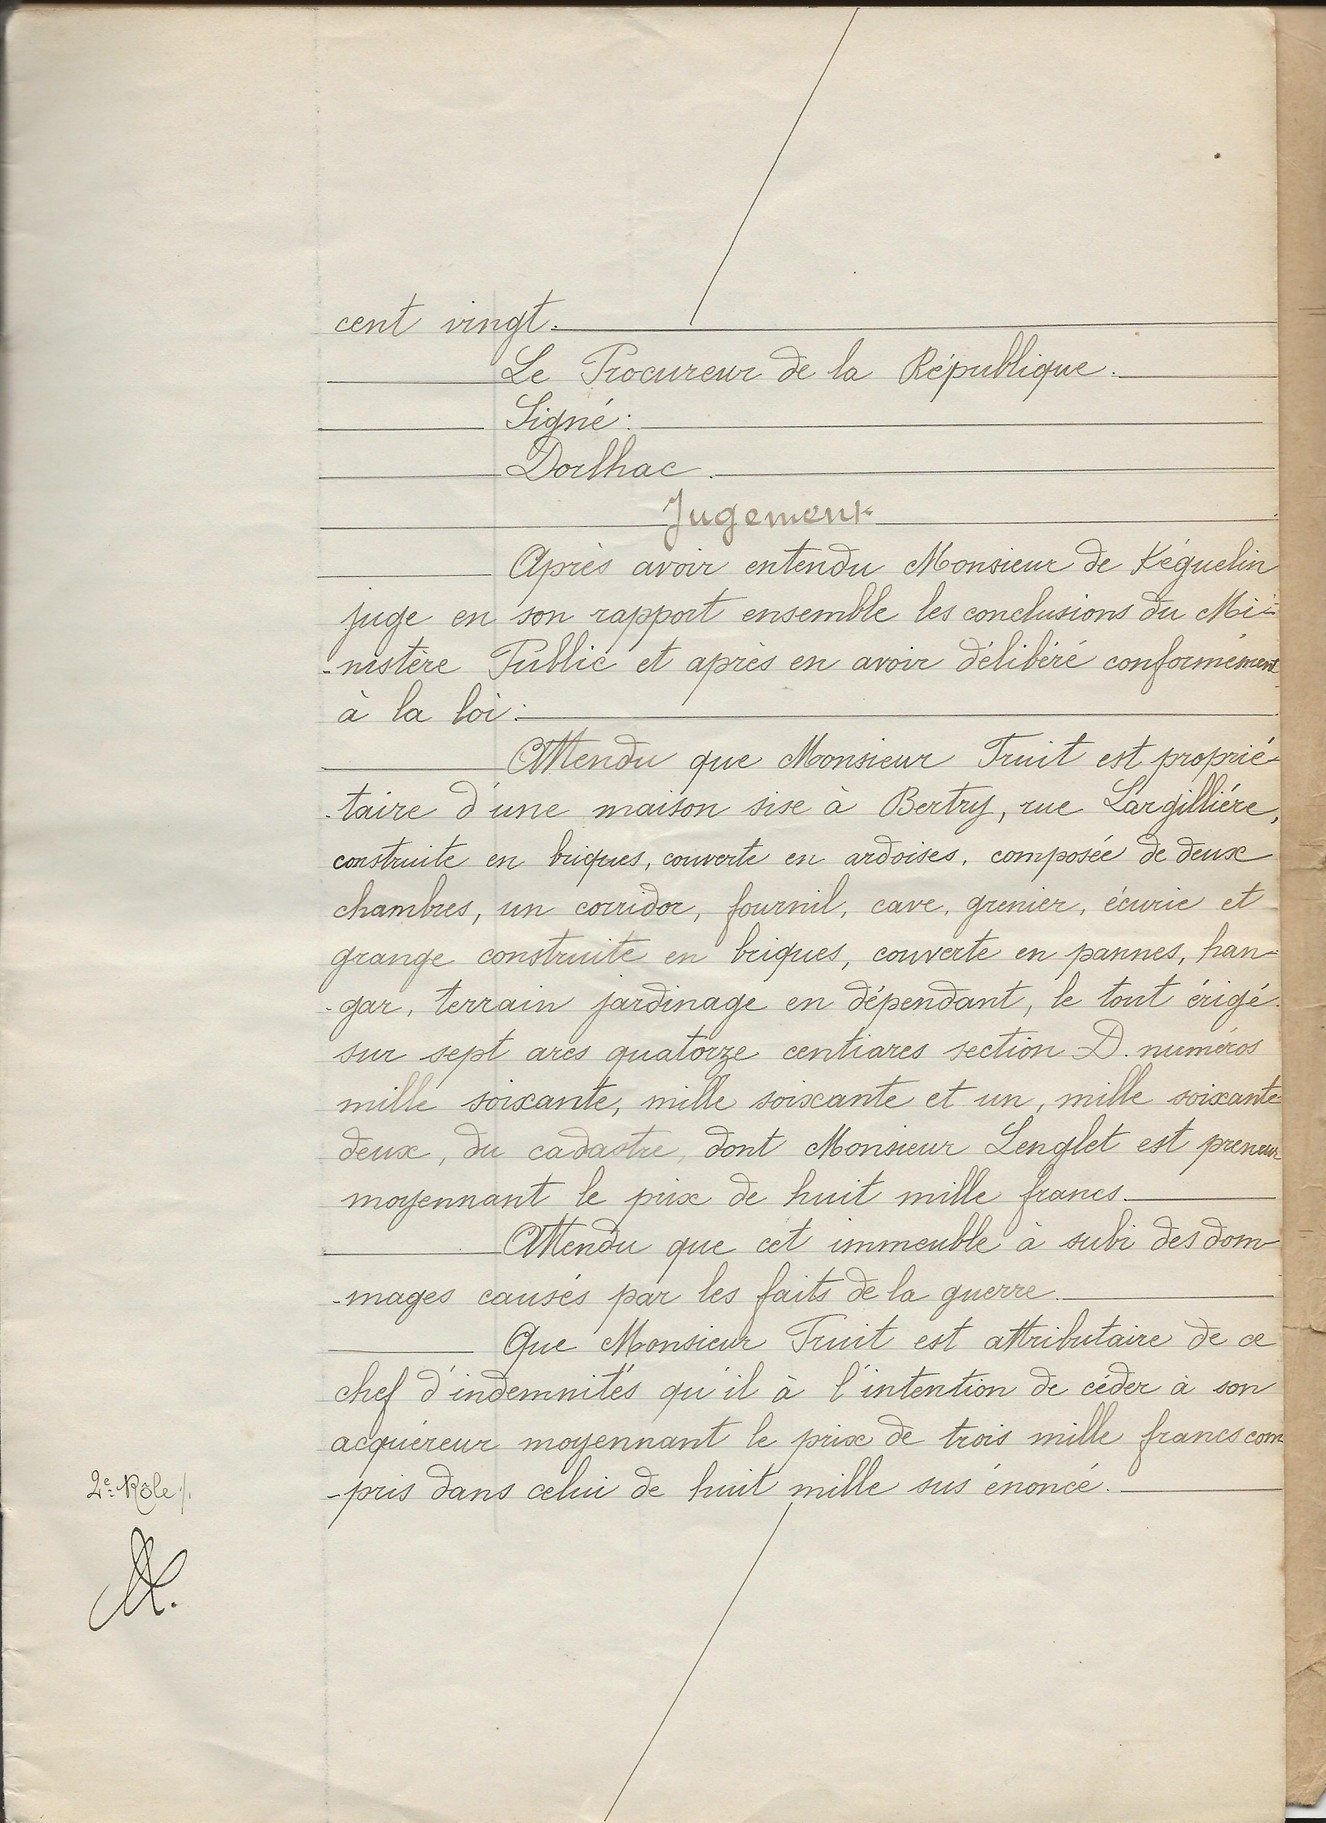 cent vingt.
Le Procureur de la République.
Signé:
Dorlhac.
Jugement
Après avoir entendu Monsieur de Kéguelin
juge en son rapport ensemble les conclusions du Mi-
-nistère Public et après en avoir délibéré conformément
à la loi:
Attendu que Monsieur Fruit est proprié-
-taire d'une maison sise à Bertry, rue Largillière,
construite en briques, couverte en ardoises, composée de deux
chambres, un corridor, fournil, cave, grenier, écurie et
grange construite en briques, couverte en pannes, han-
-gar, terrain jardinage en dépendant, le tout érigé
sur sept ares quatorze centiares section D. numéros
mille soixante, mille soixante et un, mille soixante
deux, du cadastre, dont Monsieur Lenglet est preneur
moyennant le prix de huit mille francs.
Attendu que cet immeuble à subi des dom-
-mages causés par les faits de la guerre.
Que Monsieur Fruit est attributaire de ce
chef d'indemnités qu'il à l'intention de céder à son
acquéreur moyennant le prix de trois mille francs com
-pris dans celui de huit mille sus énoncé.
2e Rôle/.